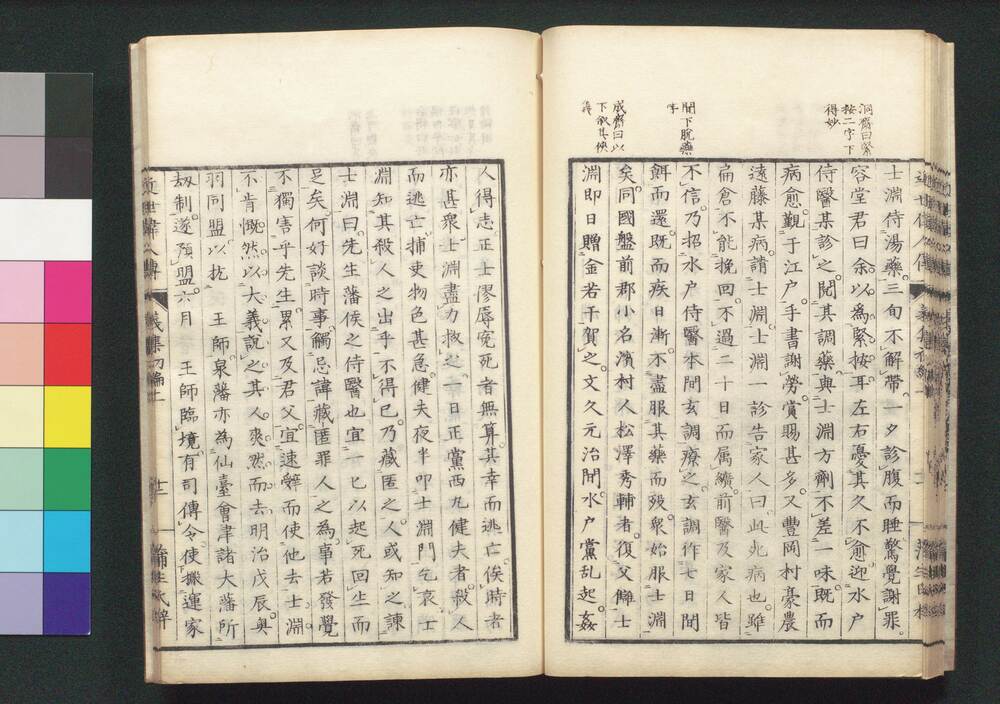 洞齋曰緊
按二字下
得妙
間下脫藥
字
成齋曰以
下敘其俠
士淵侍湯藥三旬不解帶一夕診腹而睡驚覺謝罪
容堂君曰余以為緊按耳左右憂其久不愈迎水戶
侍醫某診之閱其調藥與士淵方劑不差一味既而
病愈覲于江戶手書謝勞賞賜甚多又豐岡村豪農
遠藤某病請士淵士淵一診告家人曰此兆病也雖
扁倉不能挽回不過二十日而属纊前醫及家人皆
不信乃招水戶侍醫本間玄調療之玄調作七日間
餌而還既而疾日漸不盡服其藥而歿衆始服士淵
矣同國盤前郡小名濱村人松澤秀輔者復父讎士
淵即日贈金若干賀之文久元治間水戶黨乱起姦
人得志正士僇辱冤死者無算其幸而逃亡俟時者
亦甚衆士淵盡力救之一日正黨西九健夫者殺人
而逃亡捕吏物色甚急健夫夜半叩士淵門乞哀士
淵知其殺人之出乎不得已乃藏匿之人或知之諫
士淵曰先生藩侯之侍醫也宜一匕以起死回生而
足矣何好談時事觸忌諱藏匿罪人之為事若發覺
不獨害乎先生累又及君父宜速辭而使他去士淵
不肯慨然以大義說之其人爽然而去明治戊辰奥
羽同盟以抗　王師泉藩亦為仙臺會津諸大藩所
劫制遂預盟六月　王師臨境有司傳令使搬運家
近世偉人傳
義集初編上
十二
蒲生氏梓